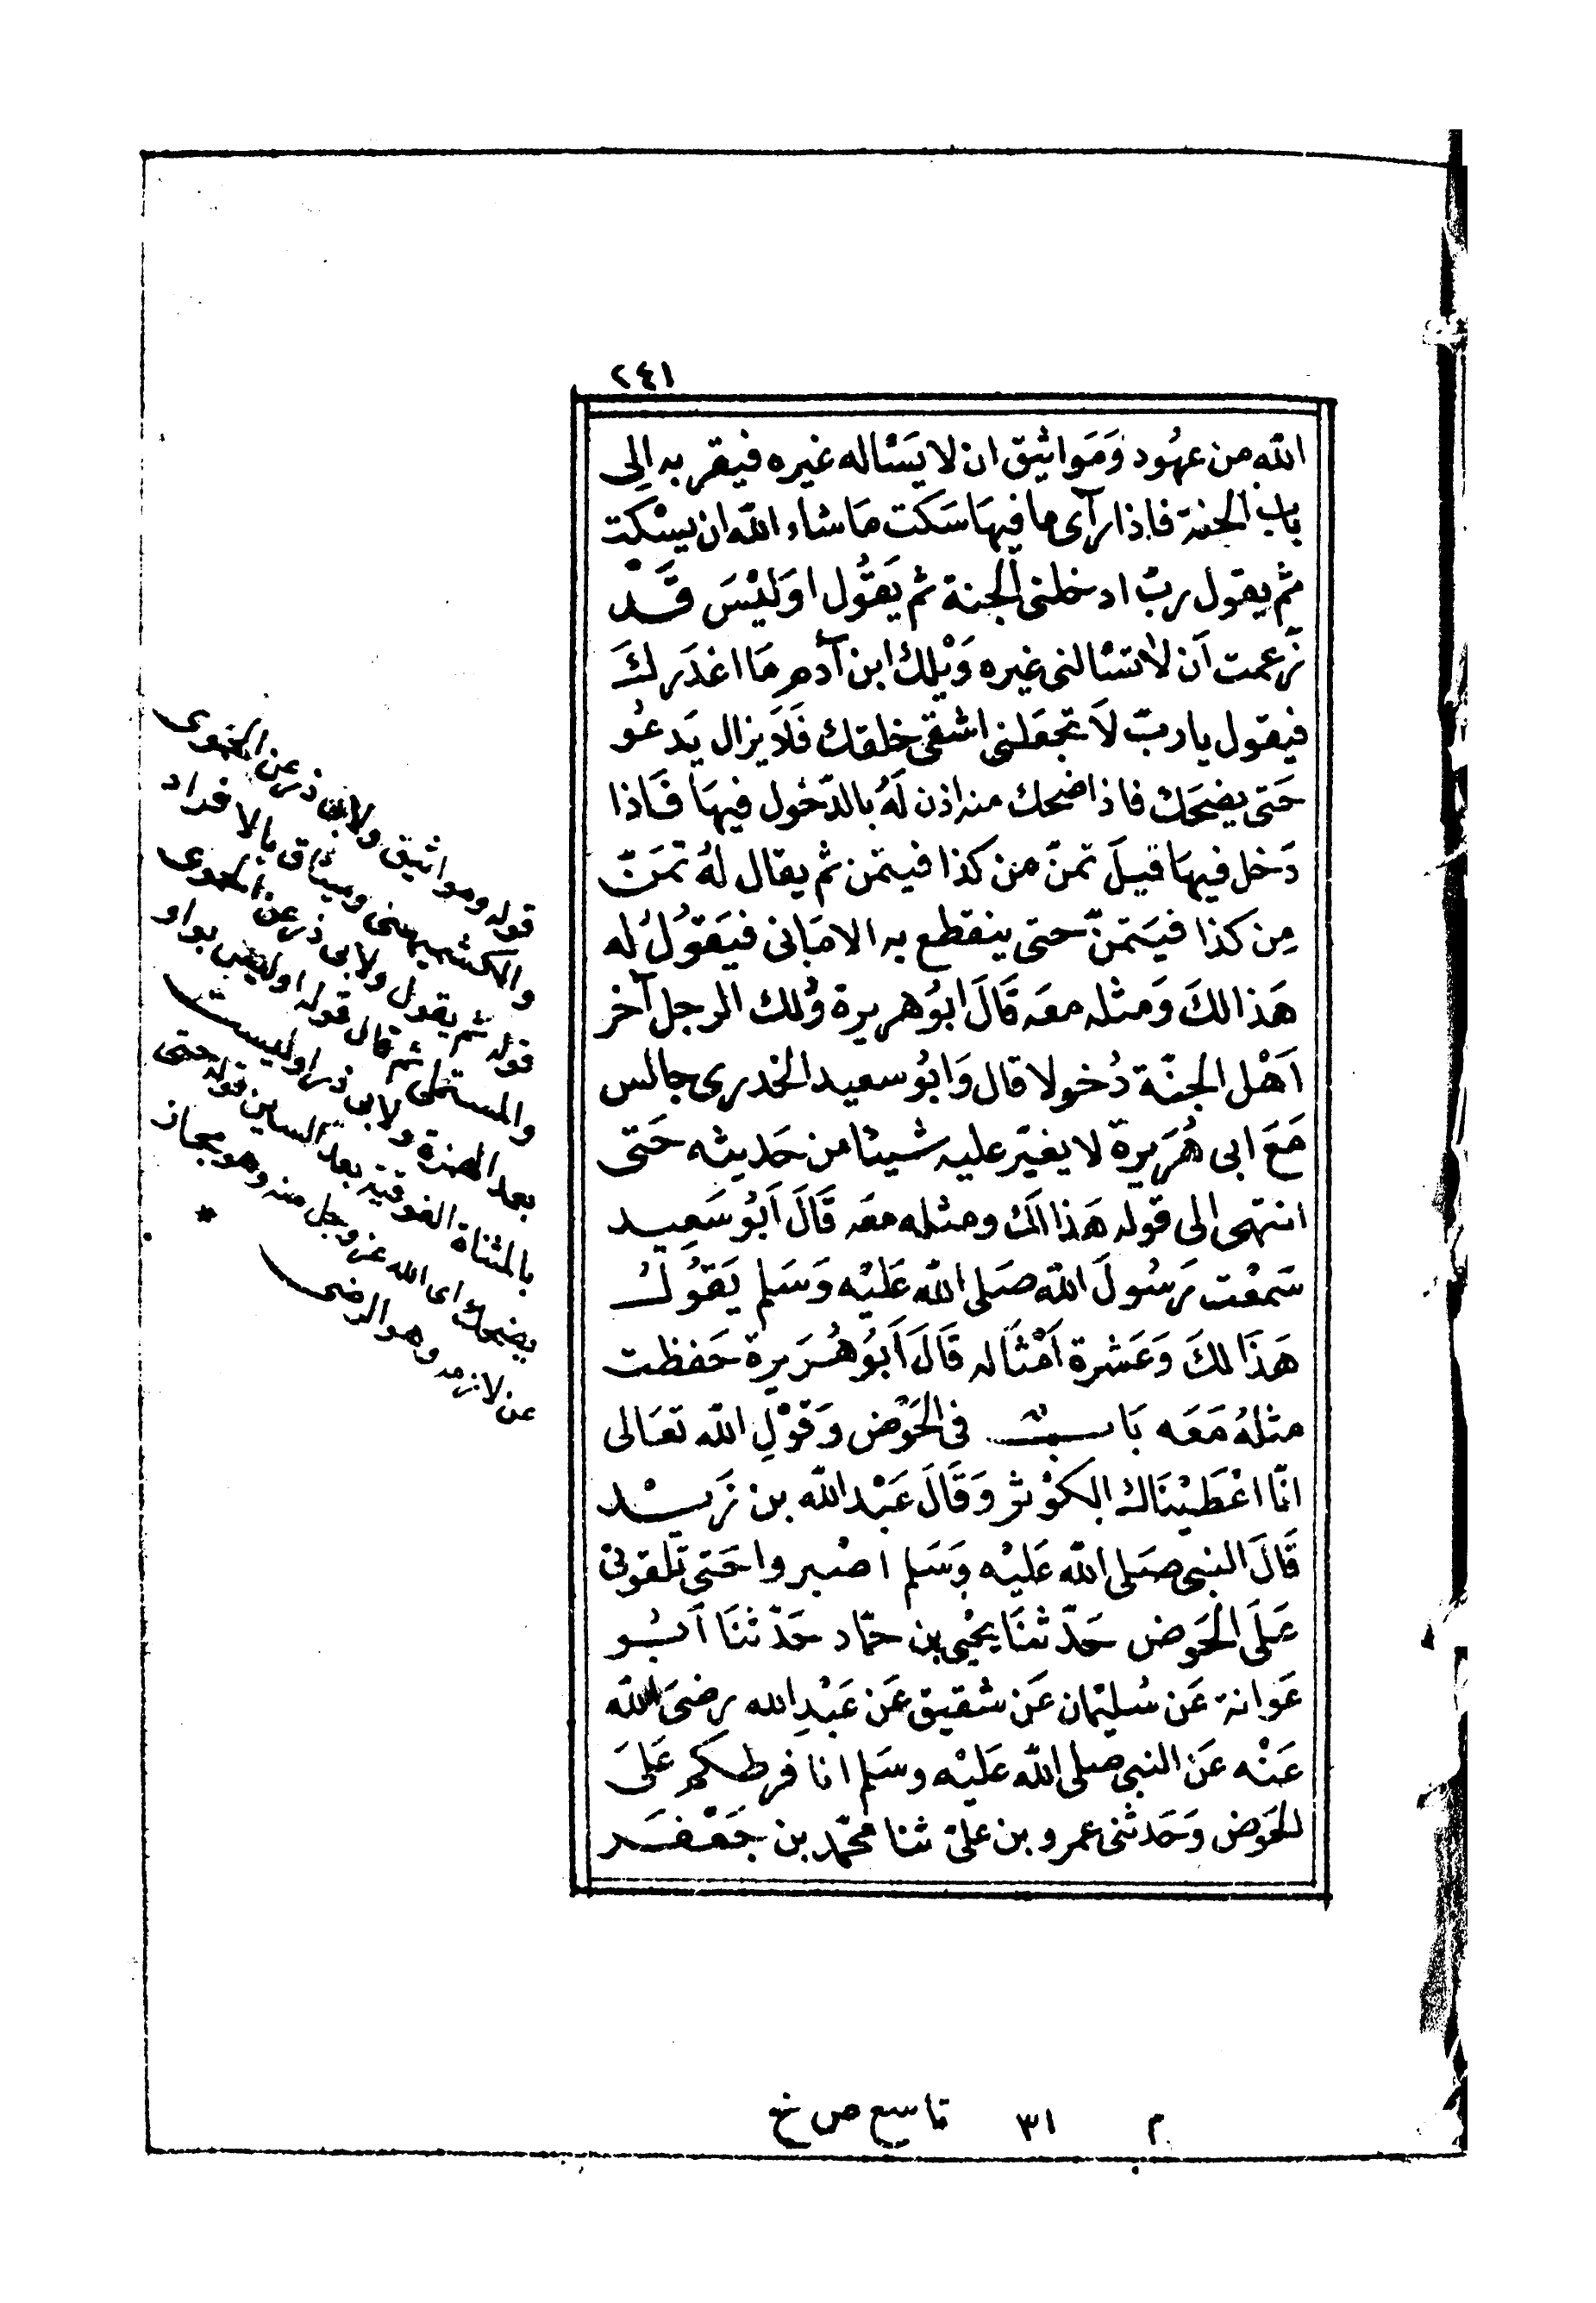 ٢٤١
الله من عهُود وَمَواثيق ان لا يَسْاله غيره فيقربه الى
باب الجنة فاذا رآى ما فيهَا سَكت مَا شاء الله ان يسْكت
ثم يقول ربّ ادخلنى الجنة ثم يَقُول اوَليْسَ قَد
زَعمت اَن لا تسْالنى غيره وَيْلك ابن آدم مَا اغدَرك
فيقول يارَبّ لاَ تجعَلنى اشقى خلقك فَلاَ يزال يَدعُو
حَتى يضحَك فاذا ضحك منه اذن لَهُ بالدّخول فيهَا فَاذا
دَخل فيهَا قيلَ تمنّ من كذا فيتمن ثم يقال لهُ تمَنّ
مِن كذا فيَتمنّ حتى ينقطع به الامَانى فيَقوُلُ له
هَذا لكَ وَمثله معَه قَالَ ابوُ هريرة وَذلك الرجل آخر
اَهْل الجنّة دُخولا قال وَابوُ سعيد الخدرى جالس
مَعَ ابى هُرَيرةَ لا يغيّر عليه شيئا من حَديثه حَتى
انتهى الى قوله هَذا لك ومثله معَه قَالَ اَبوُ سَعِيد
سَمعْت رَسُولَ الله صَلى الله عَليْه وَسَلم يَقوُلُ
هَذَا لكَ وَعَشرة اَمْثَاله قَالَ اَبوُ هُرَيرة حَفظت
مثلهُ مَعَه بَاب فى الحَوْض وَقوْلِ الله تعَالى
انّا اعْطَيْنَاك الكوْثر وَقَالَ عَبْد الله بن زَيْد
قَالَ النبى صَلى الله عَليْه وَسَلم اصْبروا حَتى تَلقونى
عَلَى الحَوض حَدّثنَا يحْيى بن حمّاد حَدّثنَا اَبُو
عَوانة عَن سُليْمان عَن شقيق عَن عَبْدِ الله رضىَ الله
عَنْه عَن النبى صلى الله عَليْه وسَلم انا فرطكم عَلى
الحَوض وَحَدثنى عمرو بن علىّ ثنا محمّد بن جَعْفَر
قوله ومواثيق ولابى ذر عن الحموى
والكشميهنى وميثاق بالافراد
قوله ثم يقول ولابى ذر عن الحموى
والمستملى ثم قال قوله اوليس بواو
بعد الهمزة ولابى ذر اوليست
بالمثناة الفوقية بعد السين قوله حتى
يضحك اى الله عز وجل منه وهو مجاز
عن لازمه وهو الرضى
م ٣١ تاسع ص خ